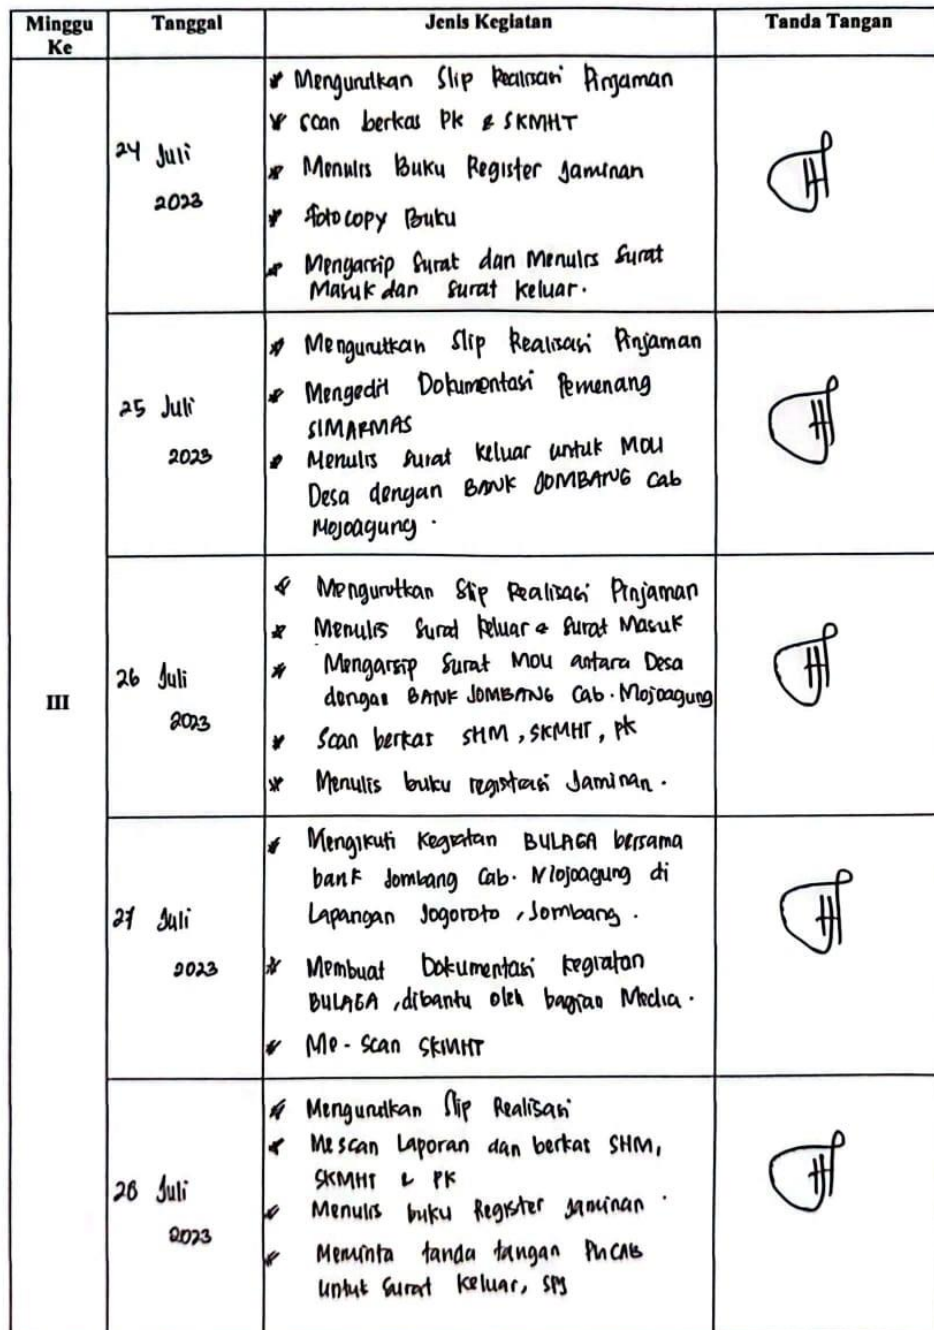 Minggu Ke
Tanggal
Jenis Kegiatan
Tanda Tangan
III
24 Juli
2023
* Mengurutkan Slip Realisasi Pinjaman
* Scan berkas PK & SKMHT
* Menulis Buku Register Jaminan
* Fotocopy Buku
* Mengarsip Surat dan Menulis Surat
Masuk dan Surat Keluar.
25 Juli
2023
* Mengurutkan Slip Realisasi Pinjaman
* Mengedit Dokumentasi Pemenang
SIMARMAS
* Menulis Surat Keluar untuk MOU
Desa dengan BANK JOMBANG Cab
Mojoagung.
26 Juli
2023
* Mengurutkan Slip Realisasi Pinjaman
* Menulis Surat Keluar & Surat Masuk
* Mengarsip Surat MOU antara Desa
dengan BANK JOMBANG Cab. Mojoagung
* Scan berkas SHM, SKMHT, PK
* Menulis buku registrasi Jaminan.
27 Juli
2023
* Mengikuti Kegiatan BULAGA bersama
bank Jombang Cab. Mojoagung di
Lapangan Jogoroto, Jombang.
* Membuat Dokumentasi kegiatan
BULAGA, dibantu oleh bagian Media.
* Me-Scan SKMHT
28 Juli
2023
* Mengurutkan Slip Realisasi
* Mescan Laporan dan berkas SHM,
SKMHT & PK
* Menulis buku Register Jaminan.
* Meminta tanda tangan PINCAB
untuk Surat Keluar, SPJ